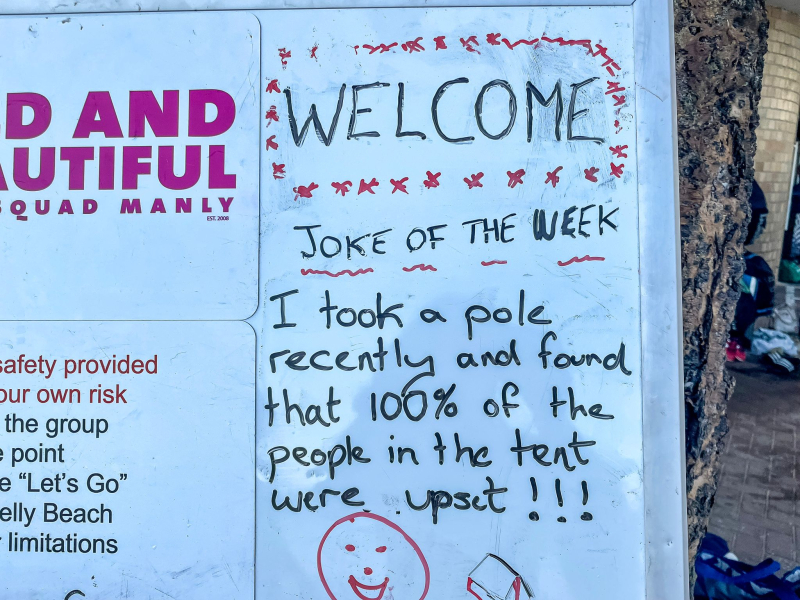 D AND
AUTIFUL
SQUAD MANLY
EST. 2008
safety provided
our own risk
the group
e point
e “Let’s Go”
elly Beach
limitations
WELCOME
JOKE OF THE WEEK
I took a pole
recently and found
that 100% of the
people in the tent
were upset !!!